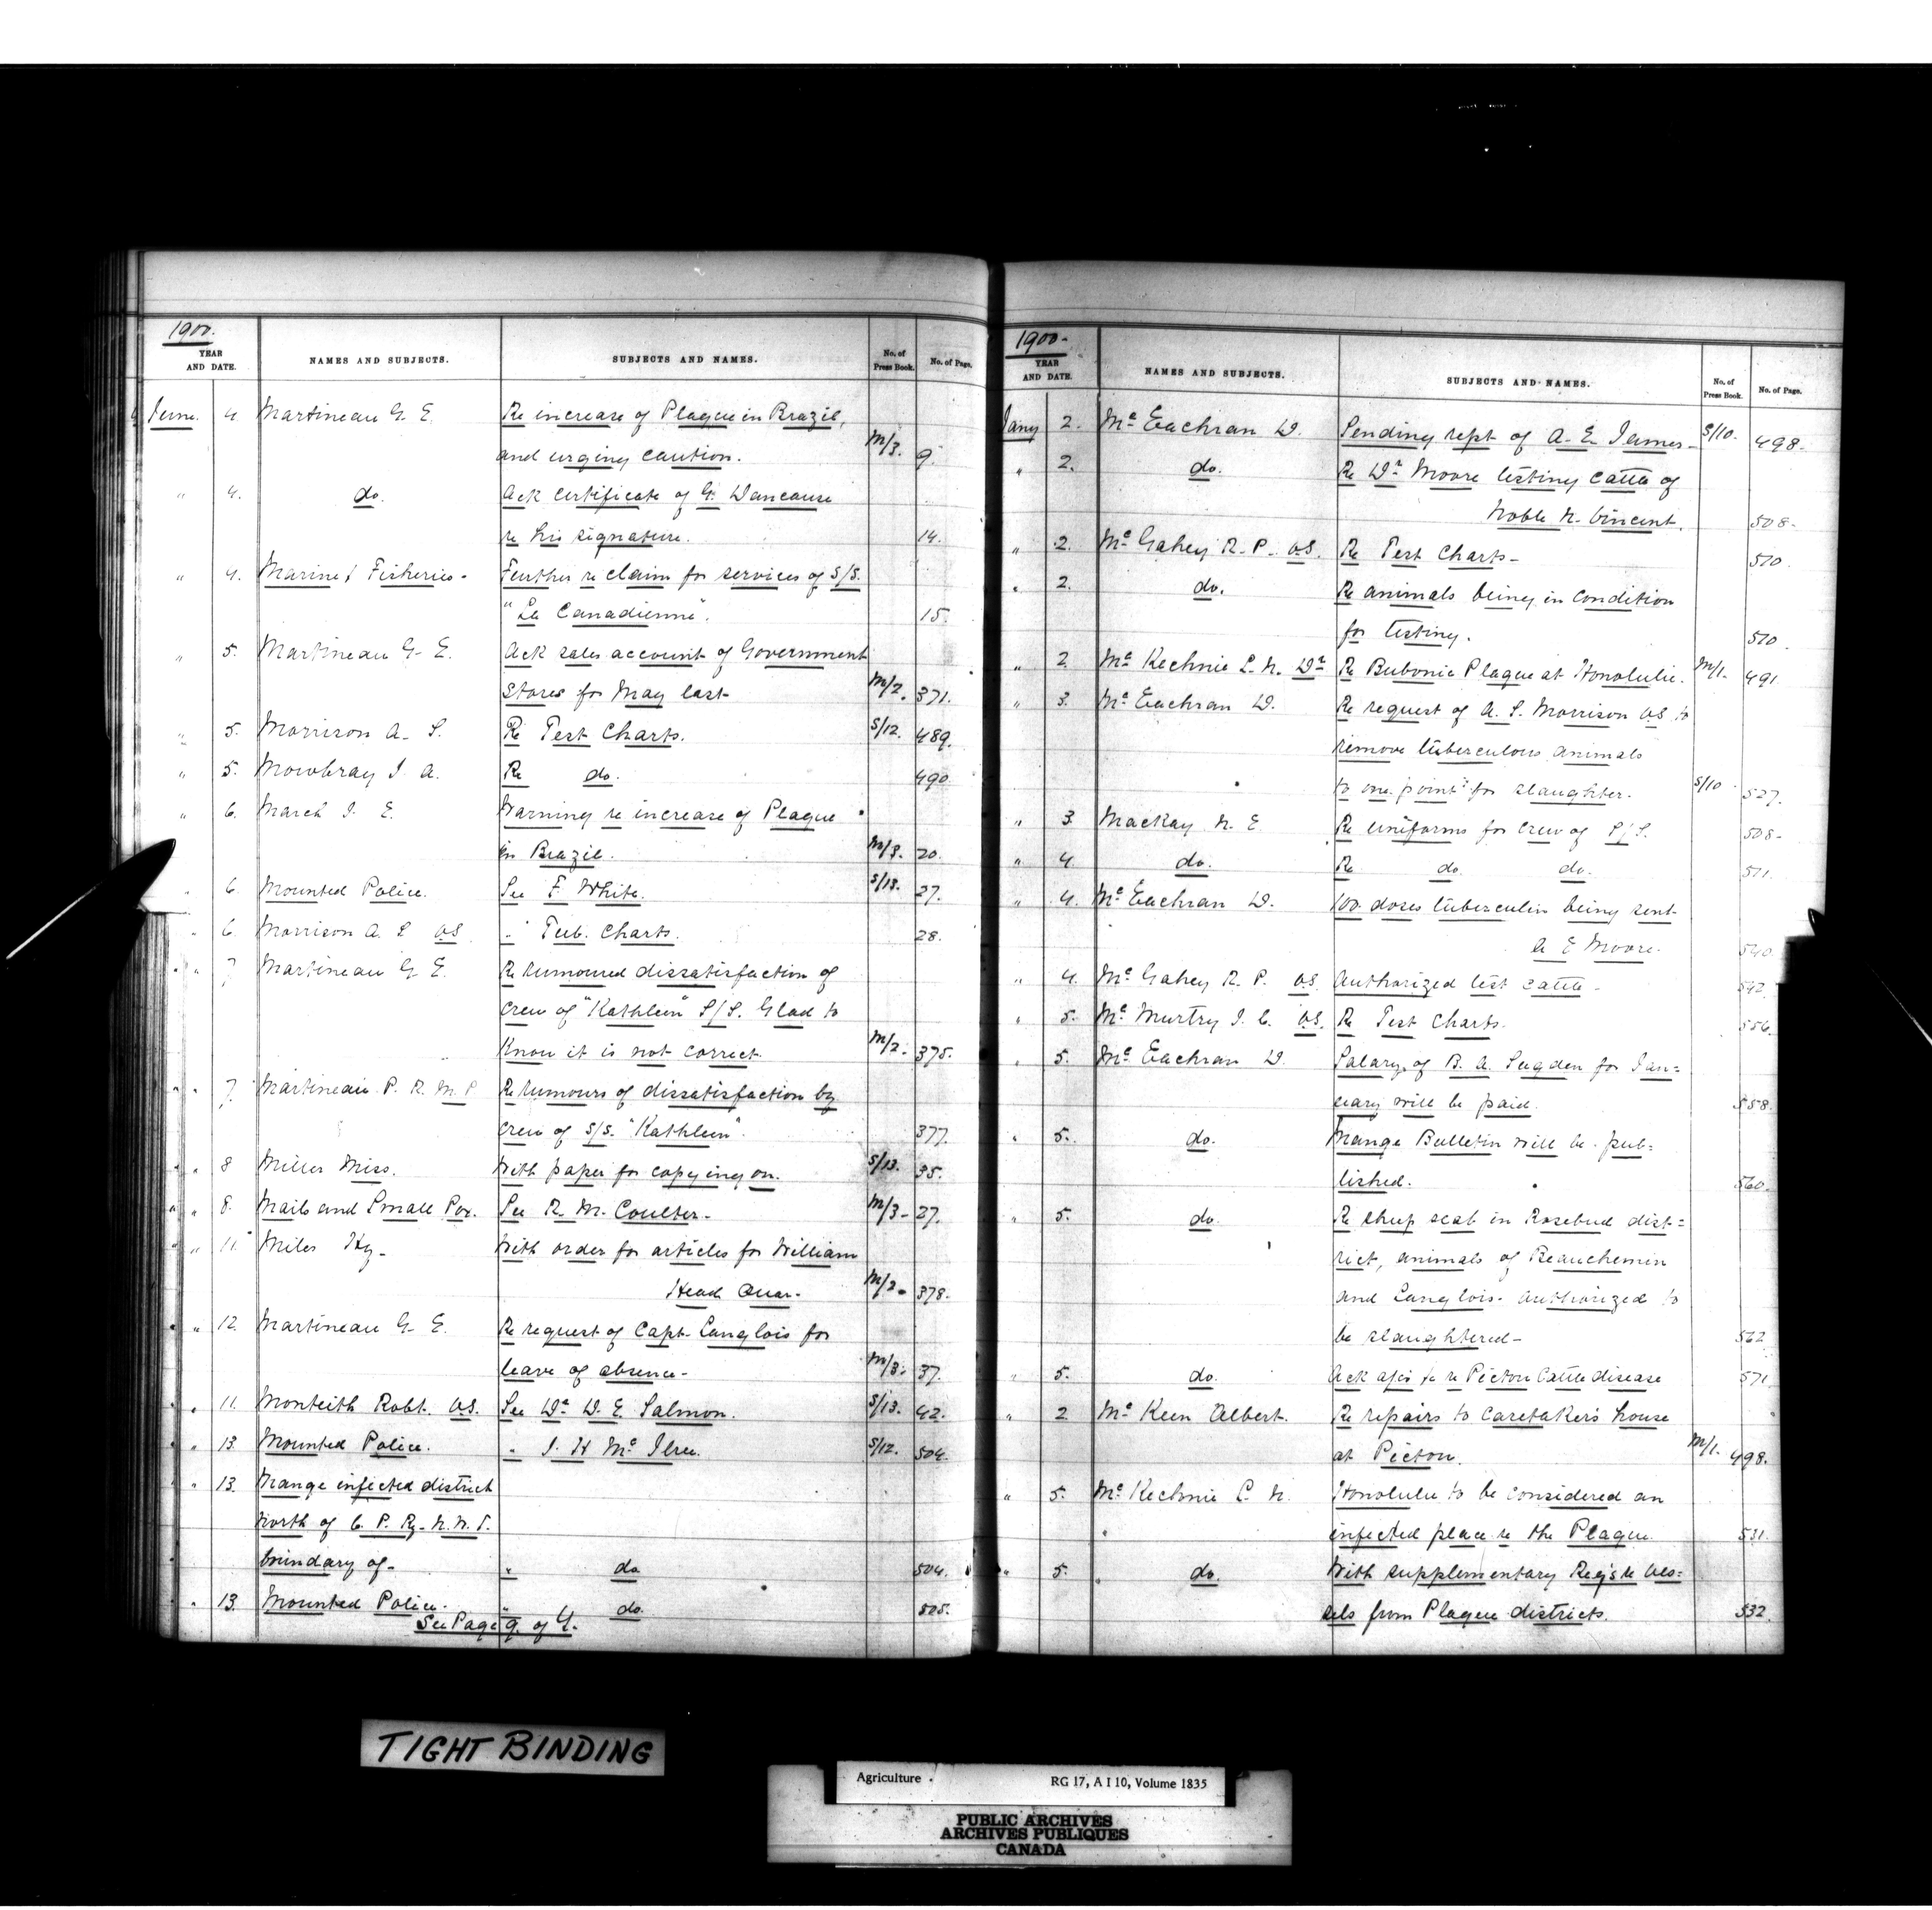 1900.
YEAR AND DATE. NAMES AND SUBJECTS. SUBJECTS AND NAMES. No. of Press Book. No. of Page.
June. 4. Martineau G. E. Re increase of Plague in Brazil,
and urging caution. M/3. 9.
" 4. do. Ack certificate of G. Dancause
re his signature. 14.
" 4. Marine & Fisheries. Further re claim for services of S/S.
"La Canadienne". 15.
" 5. Martineau G. E. Ack sales account of Government
Stores for May last M/2. 371.
" 5. Morrison A. S. Re Test Charts. S/12. 489.
" 5. Mowbray J. A. Re do. 490.
" 6. March J. E. Warning re increase of Plague
in Brazil. M/3. 20.
" 6. Mounted Police. See F. White. S/13. 27.
" 6. Morrison A. S. VS. " Tub. Charts. 28.
" 7. Martineau G. E. Re rumoured dissatisfaction of
Crew of "Kathleen" S/S. Glad to
know it is not correct. M/2. 375.
" 7. Martineau P. R. M.P Re rumours of dissatisfaction by
Crew of S/S. "Kathleen". 377.
" 8 Miller Miss. With paper for copying on. S/13. 35.
" 8. Mails and Small Pox. See R. M. Coulter. M/3 27.
" 11. Miles Hy. With order for articles for William
Head Quar. M/2. 378.
" 12. Martineau G. E. Re request of Capt. Langlois for
leave of absence. M/3. 37.
" 11. Monteith Robt. VS. See Dr. D. E. Salmon. S/13. 42.
" 13. Mounted Police. " J. H Mc Ilree. S/12. 504.
" 13. Mange infected district
North of C. P. Ry. N.W.T.
boundary of " do 504.
" 13. Mounted Police. " do. 505.
See Page 9. of Y.
1900
YEAR AND DATE. NAMES AND SUBJECTS. SUBJECTS AND NAMES. No. of Press Book. No. of Page.
Jany 2. Mc Eachran D. Sending rept of A. E. James S/10. 498.
" 2. do. Re Dr. Moore testing cattle of
Noble N. Vincent. 508.
" 2. Mc Gahey R. P. VS. Re Test Charts 510.
" 2. do. Re animals being in condition
for testing. 510.
" 2. Mc Kechnie L. N. Dr. Re Bubonic Plague at Honolulu. M/1. 491.
" 3. Mc Eachran D. Re request of A. S. Morrison VS to
remove tuberculous animals
"to one point" for slaughter. S/10 527.
" 3. Mackay N. E. Re uniforms for crew of S/S. 508.
" 4. do. Re do. do. 511.
" 4. Mc Eachran D. 100 doses tuberculin being sent
A E Moore. 540.
" 4. Mc Gahey R. P. VS. Authorized test cattle 542.
" 5. Mc Murtry J. C. VS. Re Test Charts. 556.
" 5. Mc Eachran D. Salary of B. A. Sugden for Jan=
uary will be paid. 558.
" 5. do. Mange Bulletin will be pub=
lished. 560.
" 5. do. Re sheep scab in Rosebud dist=
rict, animals of Beauchemin
and Langlois authorized to
be slaughtered 562.
" 5. do. Ack a/cs &c re Picton Cattle disease 571.
" 2 Mc Keen Albert. Re repairs to Caretaker's house
at Picton. M/1. 498.
" 5. Mc Kechnie L. N. Honolulu to be considered an
infected place re the Plague. 531.
" 5. do. With supplementary Regs re Ves=
sels from Plague districts. 532.
TIGHT BINDING
Agriculture RG 17, A I 10, Volume 1835
PUBLIC ARCHIVES
ARCHIVES PUBLIQUES
CANADA